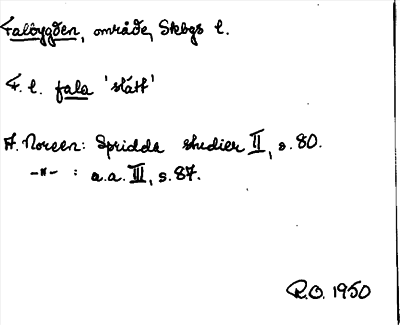 Falbygden, område, Skbgs l.
F. l. fala 'slätt'
A. Noreen: Spridda studier II, s. 80.
-"- : a.a. III, s. 87.
R.O. 1950